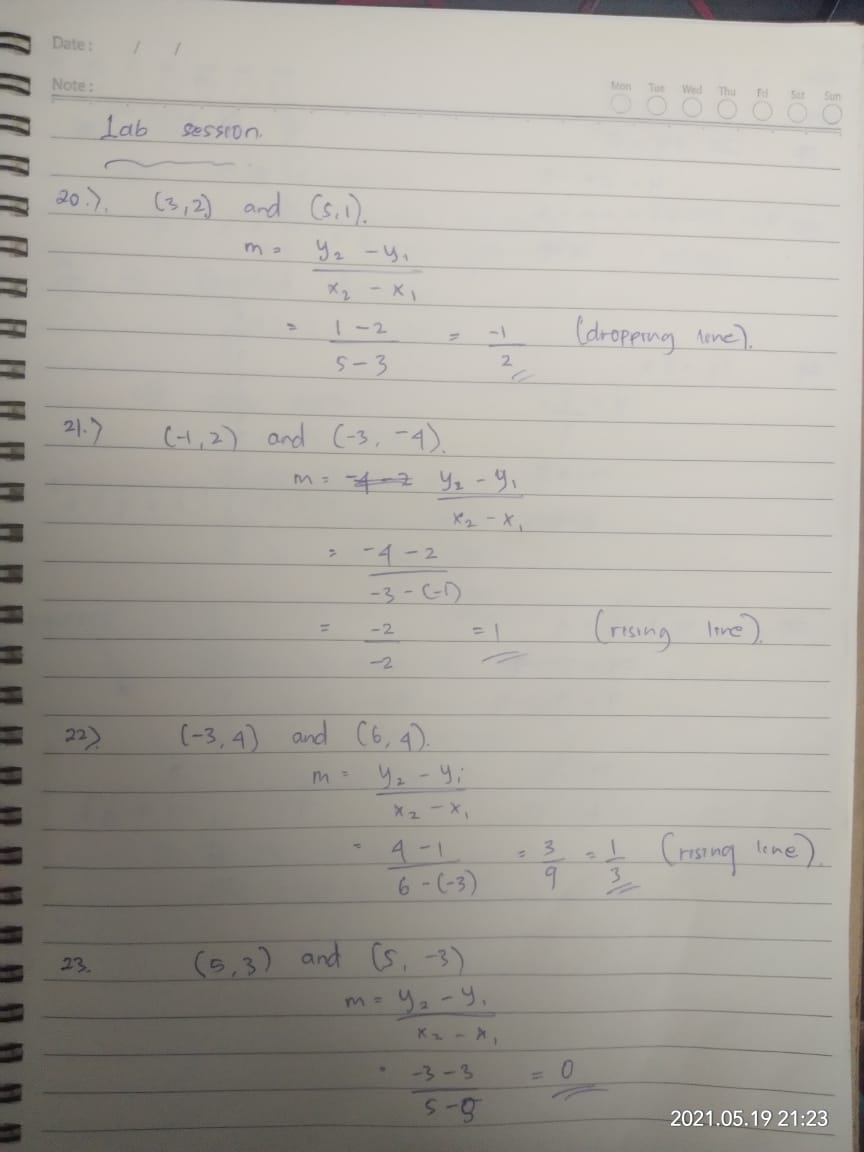 Date: / /
Note: Mon Tue Wed Thu Fri Sat Sun
Lab session.
20.) (3,2) and (5,1).
m = y₂ - y₁ / x₂ - x₁
= 1 - 2 / 5 - 3 = -1 / 2 (dropping line).
21.) (-1, 2) and (-3, -4).
m = -4 - 2 y₂ - y₁ / x₂ - x₁
= -4 - 2 / -3 - (-1)
= -2 / -2 = 1 (rising line).
22). (-3, 4) and (6, 4).
m = y₂ - y₁ / x₂ - x₁
= 4 - 1 / 6 - (-3) = 3 / 9 = 1 / 3 (rising line).
23. (5, 3) and (5, -3)
m = y₂ - y₁ / x₂ - x₁
-3 - 3 / 5 - = 0
2021.05.19 21:23